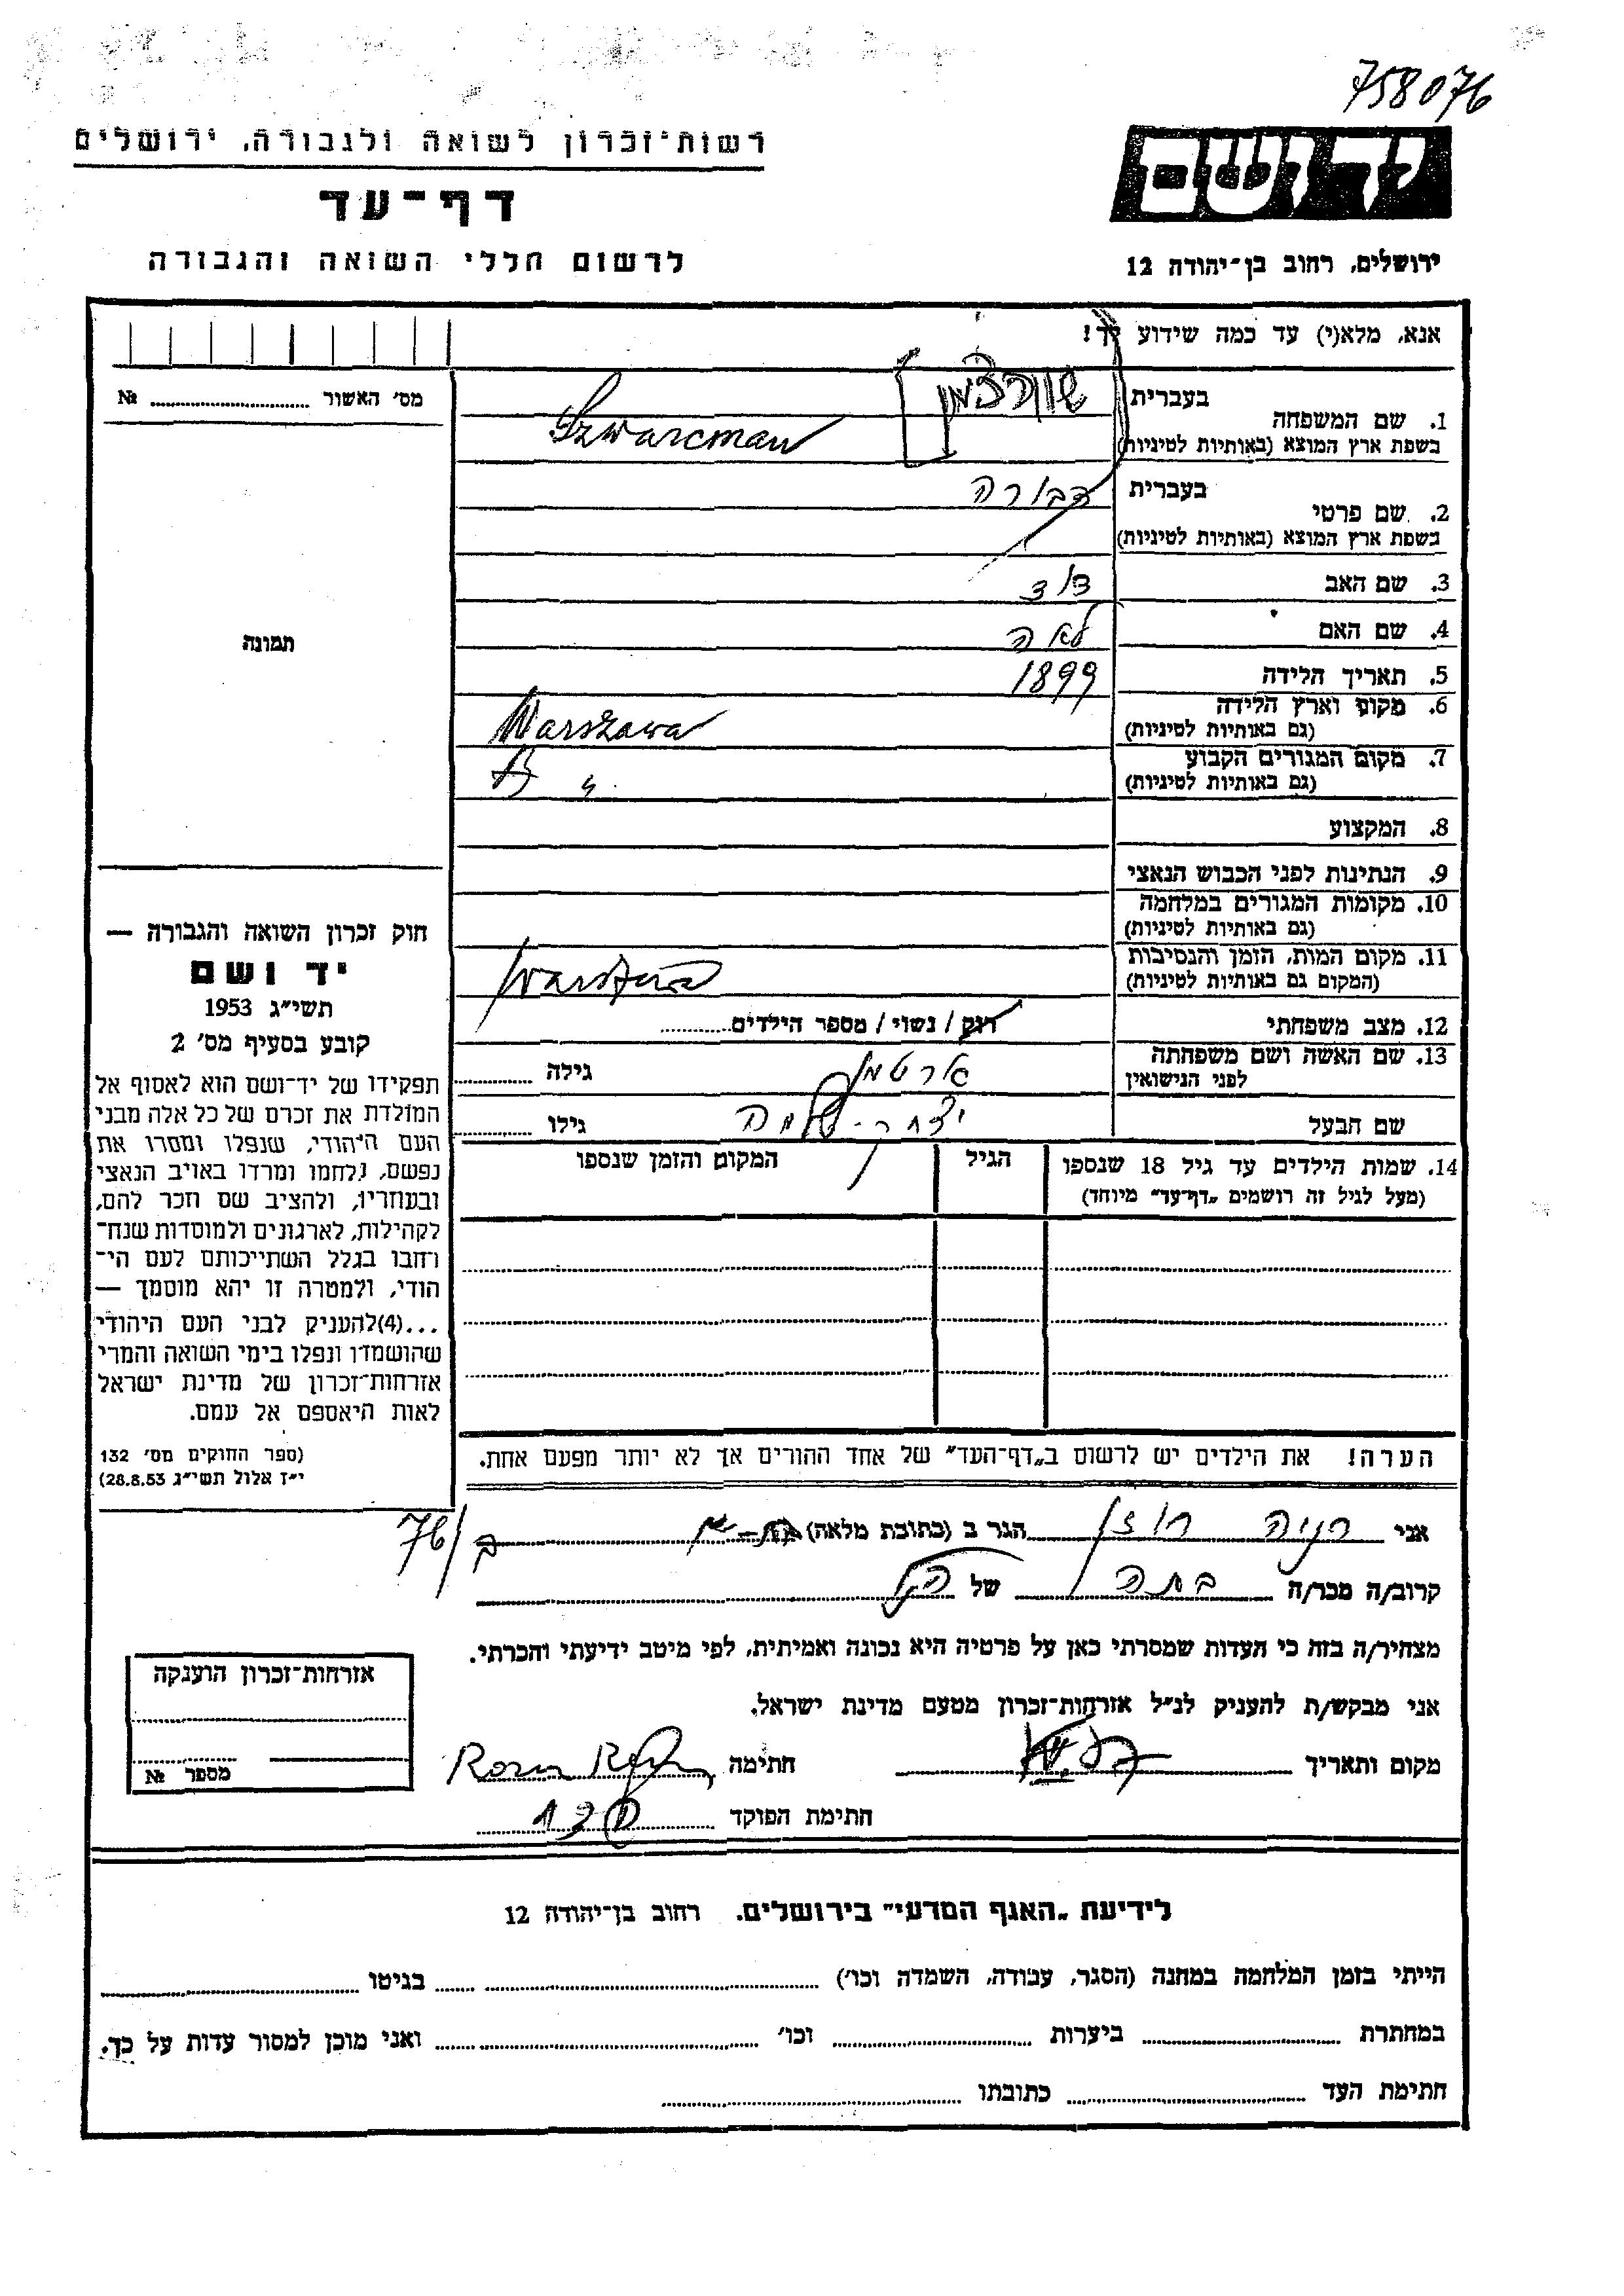 758076
רשות־זכרון לשואה ולגבורה, ירושלים
יד ושם
דף־עד
לרשום חללי השואה והגבורה
ירושלים, רחוב בן־יהודה 12
אנא, מלא(י) עד כמה שידוע לך!
מס׳ האשור № ........
1. שם המשפחה בעברית שוורצמן
בשפת ארץ המוצא (באותיות לטיניות) Szwarcman
2. שם פרטי בעברית דבורה
בשפת ארץ המוצא (באותיות לטיניות)
3. שם האב דוד
4. שם האם לאה
5. תאריך הלידה 1899
6. מקום וארץ הלידה (גם באותיות לטיניות) Warszawa
7. מקום המגורים הקבוע (גם באותיות לטיניות)
8. המקצוע
9. הנתינות לפני הכבוש הנאצי
10. מקומות המגורים במלחמה (גם באותיות לטיניות)
11. מקום המות, הזמן והנסיבות (המקום גם באותיות לטיניות) Warszawa
12. מצב משפחתי רוק / נשוי / מספר הילדים ........
13. שם האשה ושם משפחתה לפני הנישואין גילה ........
שם הבעל יצחק-שלמה גילו ........
14. שמות הילדים עד גיל 18 שנספו (מעל לגיל זה רושמים „דף־עד״ מיוחד) הגיל המקום והזמן שנספו
הערה! את הילדים יש לרשום ב„דף־העד״ של אחד ההורים אך לא יותר מפעם אחת.
תמונה
חוק זכרון השואה והגבורה —
יד ושם
תשי״ג 1953
קובע בסעיף מס׳ 2
תפקידו של יד־ושם הוא לאסוף אל
המולדת את זכרם של כל אלה מבני
העם היהודי, שנפלו ומסרו את
נפשם, נלחמו ומרדו באויב הנאצי
ובעוזריו, ולהציב שם וזכר להם,
לקהילות, לארגונים ולמוסדות שנח־
רבו בגלל השתייכותם לעם הי־
הודי, ולמטרה זו יהא מוסמך —
...(4)להעניק לבני העם היהודי
שהושמדו ונפלו בימי השואה והמרי
אזרחות־זכרון של מדינת ישראל
לאות היאספם אל עמם.
(ספר החוקים מס׳ 132
י״ז אלול תשי״ג 28.8.53)
אני רוזן הגר ב (כתובת מלאה) 76
קרוב/ה מכר/ה בתה של הנ״ל
מצהיר/ה בזה כי העדות שמסרתי כאן על פרטיה היא נכונה ואמיתית, לפי מיטב ידיעתי והכרתי.
אני מבקש/ת להעניק לנ״ל אזרחות־זכרון מטעם מדינת ישראל.
מקום ותאריך חתימה
חתימת הפוקד
אזרחות־זכרון הוענקה
מספר №
לידיעת „האגף המדעי״ בירושלים. רחוב בן־יהודה 12
הייתי בזמן המלחמה במחנה (הסגר, עבודה, השמדה וכו׳) ........ בגיטו ........
במחתרת ........ ביערות ........ וכו׳ ........ ואני מוכן למסור עדות על כך.
חתימת העד ........ כתובתו ........